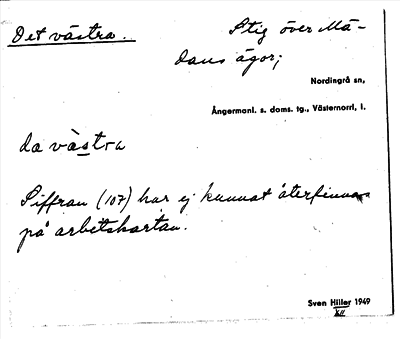 Det västra.
Stig över Mä-
dans ägor;
Nordingrå sn,
Ångermanl. s. doms. tg., Västernorrl, l.
da västra
Siffran (107) har ej kunnat återfinnas
på arbetskartan.
Sven Hiller 1949
XII